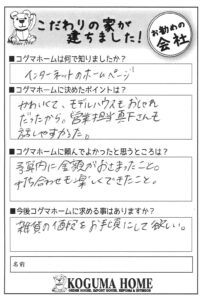 こだわりの家が
建ちました!
お勧めの
会社
■コグマホームは何で知りましたか?
インターネットのホームページ
■コグマホームに決めたポイントは?
かわいくて、モデルハウスもおしゃれ
だったから。営業担当真下さんも
話しやすかった。
■コグマホームに頼んでよかったと思うところは?
予算内に金額がおさまったこと。
打ち合わせも楽しくできたこと。
■今後コグマホームに求める事はありますか?
雑貨の価格をお手頃にして欲しい。
名前
KOGUMA HOME